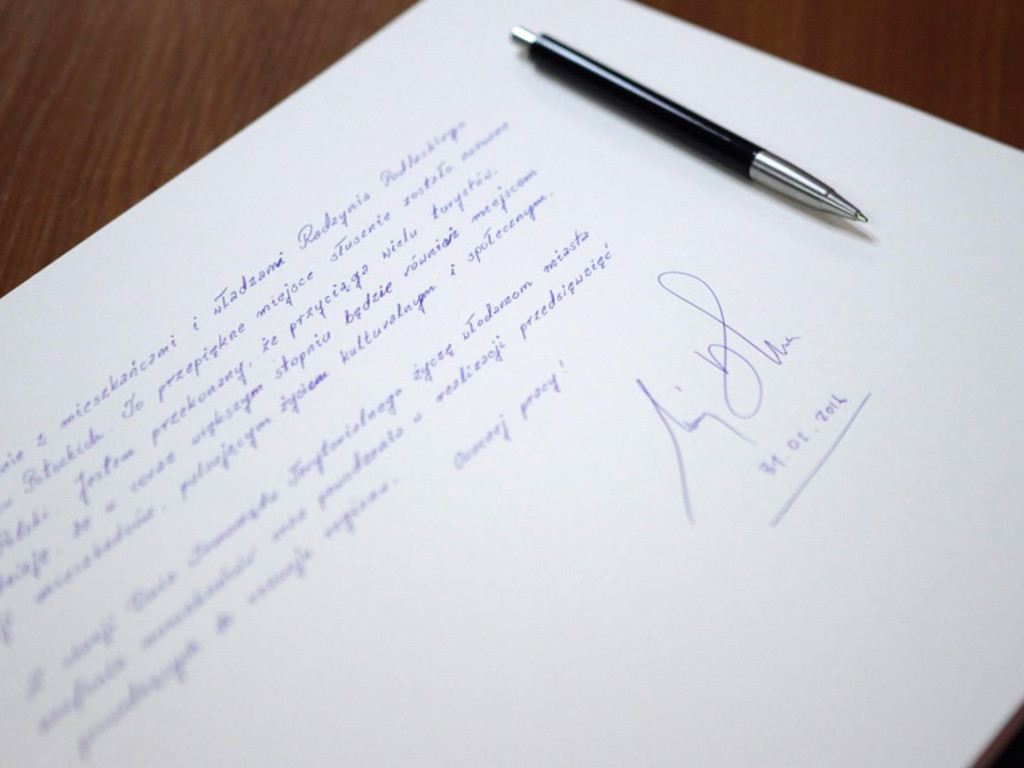 z mieszkańcami i władzami Radzynia Podlaskiego
Potockich. To przepiękne miejsce słusznie zostało
Polski. Jestem przekonany, że przyciąga wielu turystów.
że w coraz większym stopniu będzie również miejscem
mieszkańców, pulsującym życiem kulturalnym i społecznym.
Z okazji Dnia Samorządu Terytorialnego życzę włodarzom miasta
mieszkańców oraz powodzenia w realizacji przedsięwzięć
do rozwoju regionu.
Owocnej pracy!
31.05.2016